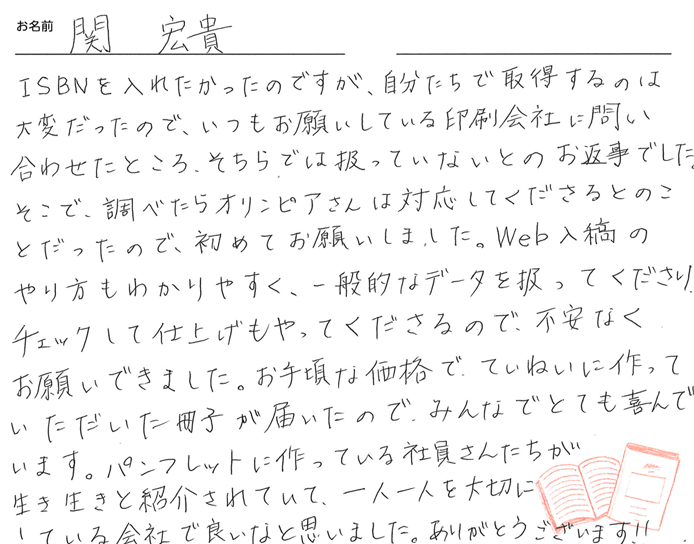 お名前 関 宏貴
ISBNを入れたかったのですが、自分たちで取得するのは
大変だったので、いつもお願いしている印刷会社に問い
合わせたところ、そちらでは扱っていないとのお返事でした。
そこで、調べたらオリンピアさんは対応してくださるとのこ
とだったので、初めてお願いしました。Web入稿の
やり方もわかりやすく、一般的なデータを扱ってくださり、
チェックして仕上げもやってくださるので、不安なく
お願いできました。お手頃な価格で、ていねいに作って
いただいた冊子が届いたので、みんなでとても喜んで
います。パンフレットに作っている社員さんたちが
生き生きと紹介されていて、一人一人を大切に
している会社で良いなと思いました。ありがとうございます!!